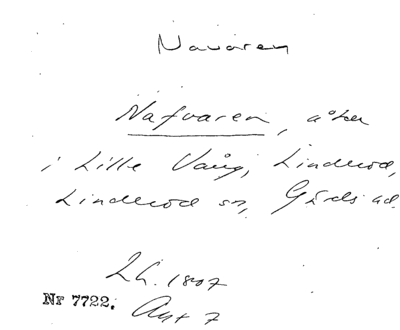 Navaren
Nafvaren, åker
i Lille Vång, Linderöd,
Linderöd sn, Gärds hd.
LH. 1807
Nr 7722. Akt 7